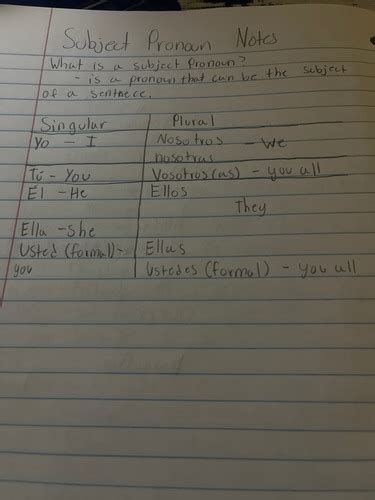 Subject Pronoun Notes
What is a subject pronoun?
- is a pronoun that can be the subject
of a sentnece.
Singular Plural
Yo - I Nosotros - We
nosotras
Tú - You Vosotros(as) - you all
Él - He Ellos
They
Ella - She
Usted (formal) - Ellas
you Ustedes (formal) - you all